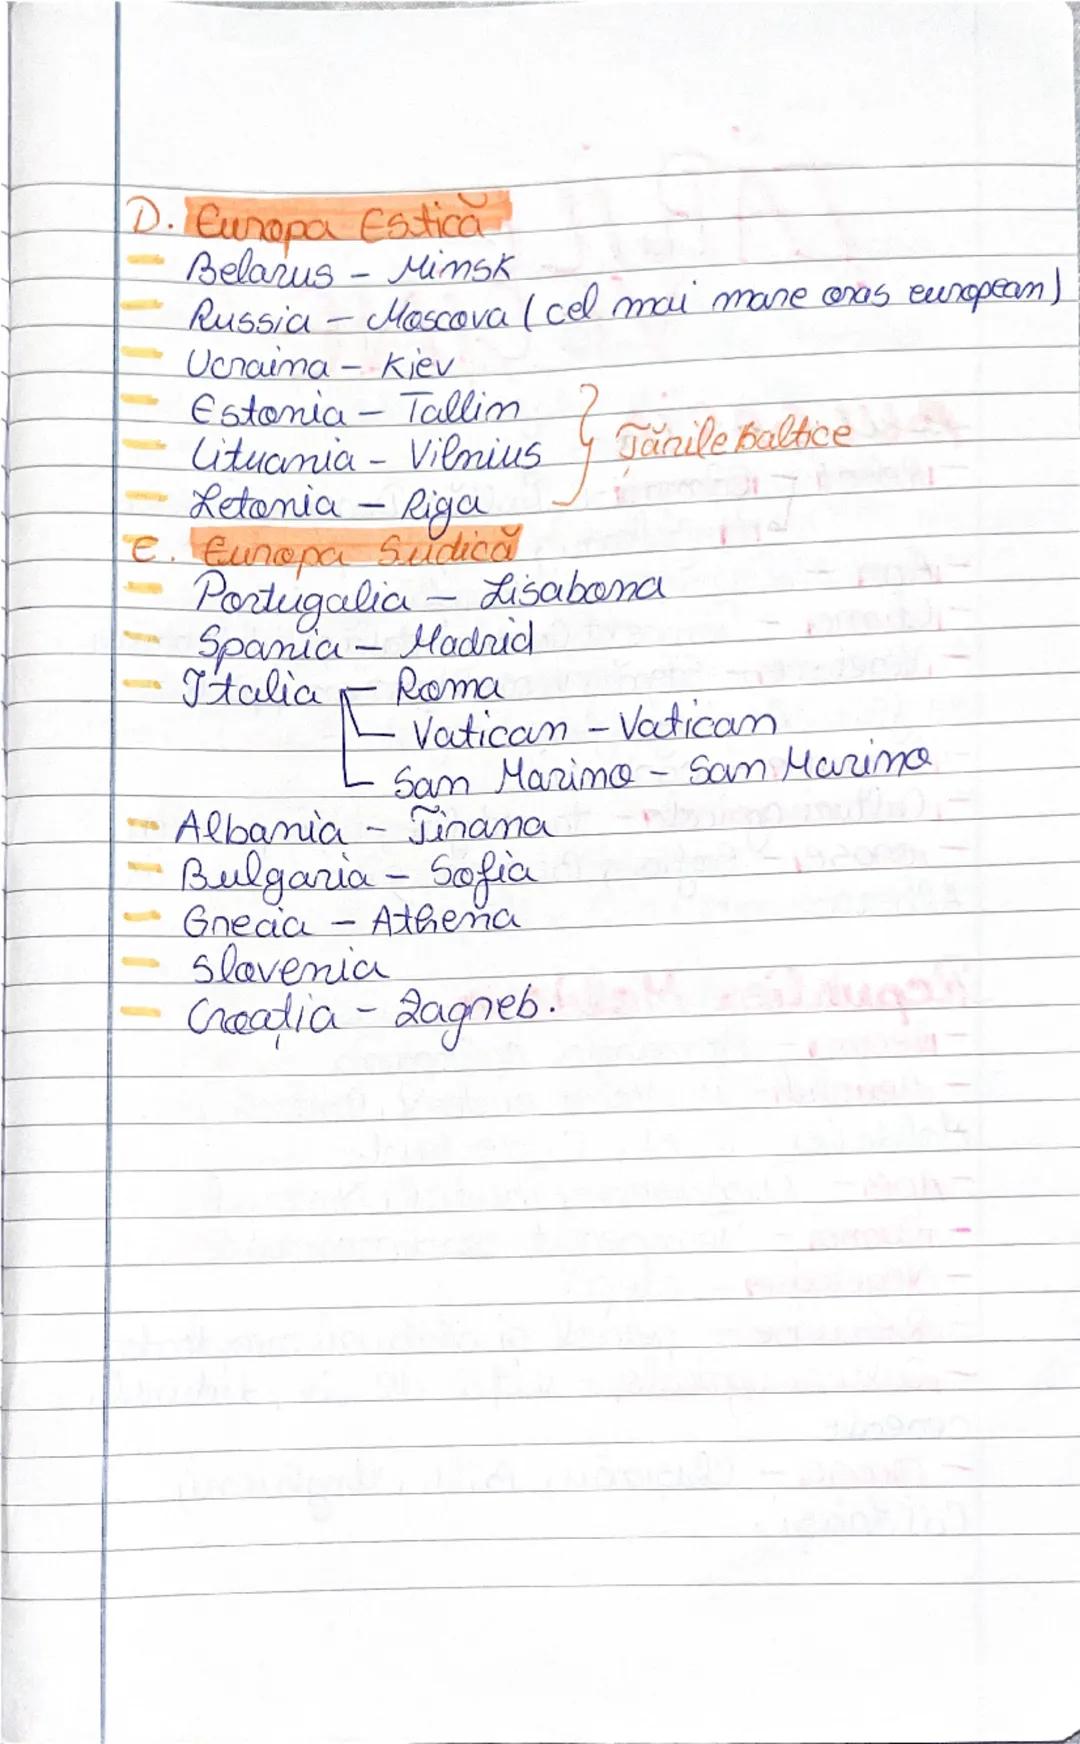 D. Europa Estică
- Belarus - Minsk
- Russia - Moscova (cel mai mare oras european)
- Ucraina - Kiev
- Estonia - Tallin
- Lituania - Vilnius } Țările Baltice
- Letonia - Riga
E. Europa Sudică
- Portugalia - Lisabona
- Spania - Madrid
- Italia - Roma
- Vatican - Vatican
- San Marino - San Marino
- Albania - Tirana
- Bulgaria - Sofia
- Grecia - Athena
- Slovenia
- Croația - Zagreb.